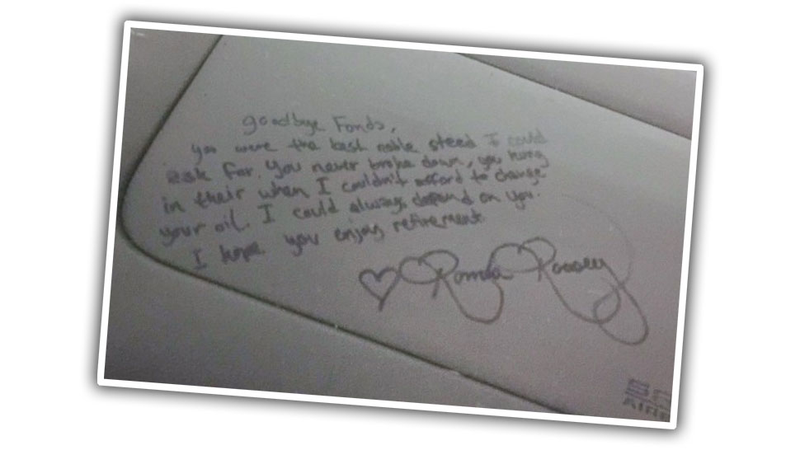 Goodbye Fonda,
you were the best noble steed I could
ask for. You never broke down, you hung
in their when I couldn't afford to change
your oil. I could always depend on you.
I hope you enjoy retirement
Ronda Rousey
AIR